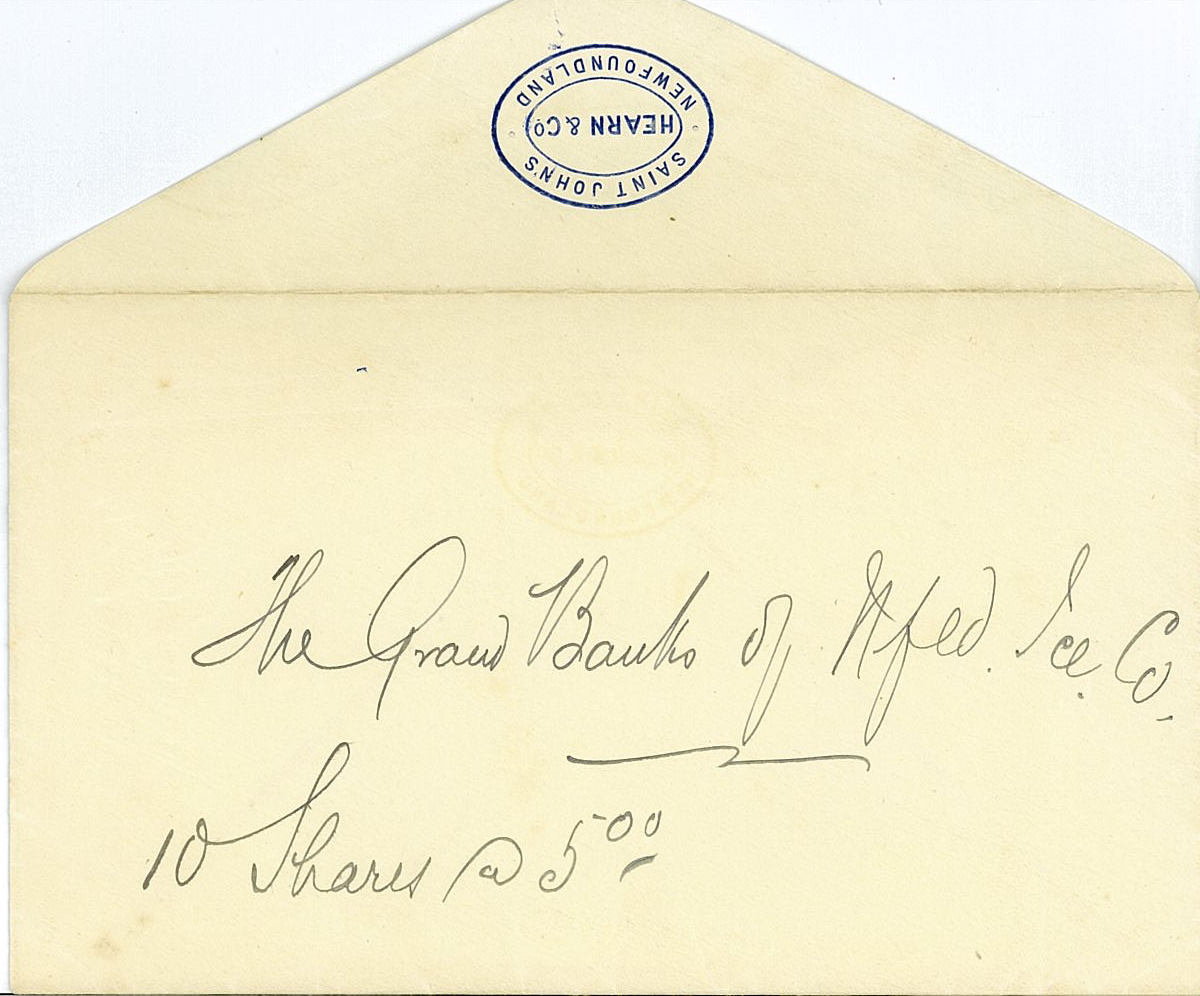 SAINT JOHN'S
HEARN & Co
NEWFOUNDLAND
The Grand Banks of Nfld. Ice Co.
10 Shares @ 5 00